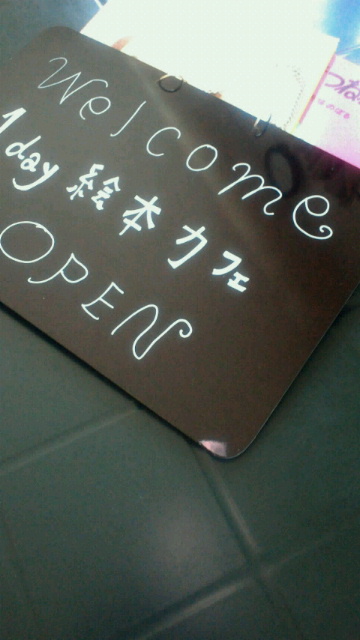 Welcome
1day 絵本カフェ
OPEN